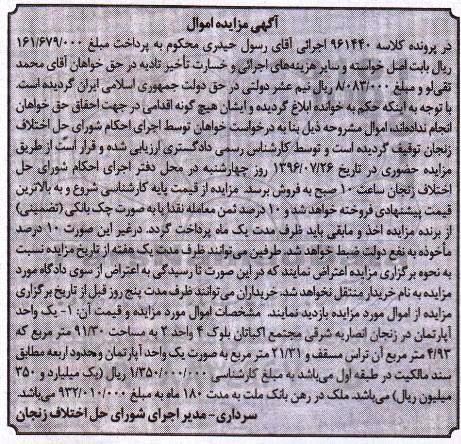 آگهی مزایده اموال
در پرونده کلاسه ۹۶۱۴۴۰ اجرائی آقای رسول حیدری محکوم به پرداخت مبلغ ۱۶۱/۶۷۹/۰۰۰
ریال بابت اصل خواسته و سایر هزینه‌های اجرائی و خسارت تأخیر تادیه در حق خواهان آقای محمد
تقی‌لو و مبلغ ۸/۰۸۳/۰۰۰ ریال نیم عشر دولتی در حق دولت جمهوری اسلامی ایران گردیده است.
با توجه به اینکه حکم به خوانده ابلاغ گردیده و ایشان هیچ گونه اقدامی در جهت احقاق حق خواهان
انجام نداده‌اند، اموال مشروحه ذیل بنا به درخواست خواهان توسط اجرای احکام شورای حل اختلاف
زنجان توقیف گردیده است و توسط کارشناس رسمی دادگستری ارزیابی شده و قرار است از طریق
مزایده حضوری در تاریخ ۱۳۹۶/۰۷/۲۶ روز چهارشنبه در محل دفتر اجرای احکام شورای حل
اختلاف زنجان ساعت ۱۰ صبح به فروش برسد. مزایده از قیمت پایه کارشناسی شروع و به بالاترین
قیمت پیشنهادی فروخته خواهد شد و ۱۰ درصد ثمن معامله نقدا یا به صورت چک بانکی (تضمینی)
از برنده مزایده اخذ و مابقی باید ظرف مدت یک ماه پرداخت گردد. درغیر این صورت ۱۰ درصد
مأخوذه به نفع دولت ضبط خواهد شد. طرفین می‌توانند ظرف مدت یک هفته از تاریخ مزایده نسبت
به نحوه برگزاری مزایده اعتراض نمایند که در این صورت تا رسیدگی به اعتراض از سوی دادگاه مورد
مزایده به نام خریدار منتقل نخواهد شد. خریداران می‌توانند ظرف مدت پنج روز قبل از تاریخ برگزاری
مزایده از اموال مورد مزایده بازدید نمایند. مشخصات اموال مورد مزایده و قیمت آن: ۱- یک واحد
آپارتمان در زنجان انصاریه شرقی مجتمع اکباتان بلوک ۴ واحد ۲ به مساحت ۹۱/۳۰ متر مربع که
۴/۹۳ متر مربع آن تراس مسقف و ۲۱/۳۱ متر مربع به صورت یک واحد آپارتمان وحدود اربعه مطابق
سند مالکیت در طبقه اول می‌باشد به مبلغ کارشناسی ۱/۳۵۰/۰۰۰/۰۰۰ ریال (یک میلیارد و ۳۵۰
میلیون ریال) می‌باشد. ملک در رهن بانک ملت به مدت ۱۸۰ ماه به مبلغ ۹۳۲/۰۱۰/۰۰۰ می‌باشد.
سرداری- مدیر اجرای شورای حل اختلاف زنجان